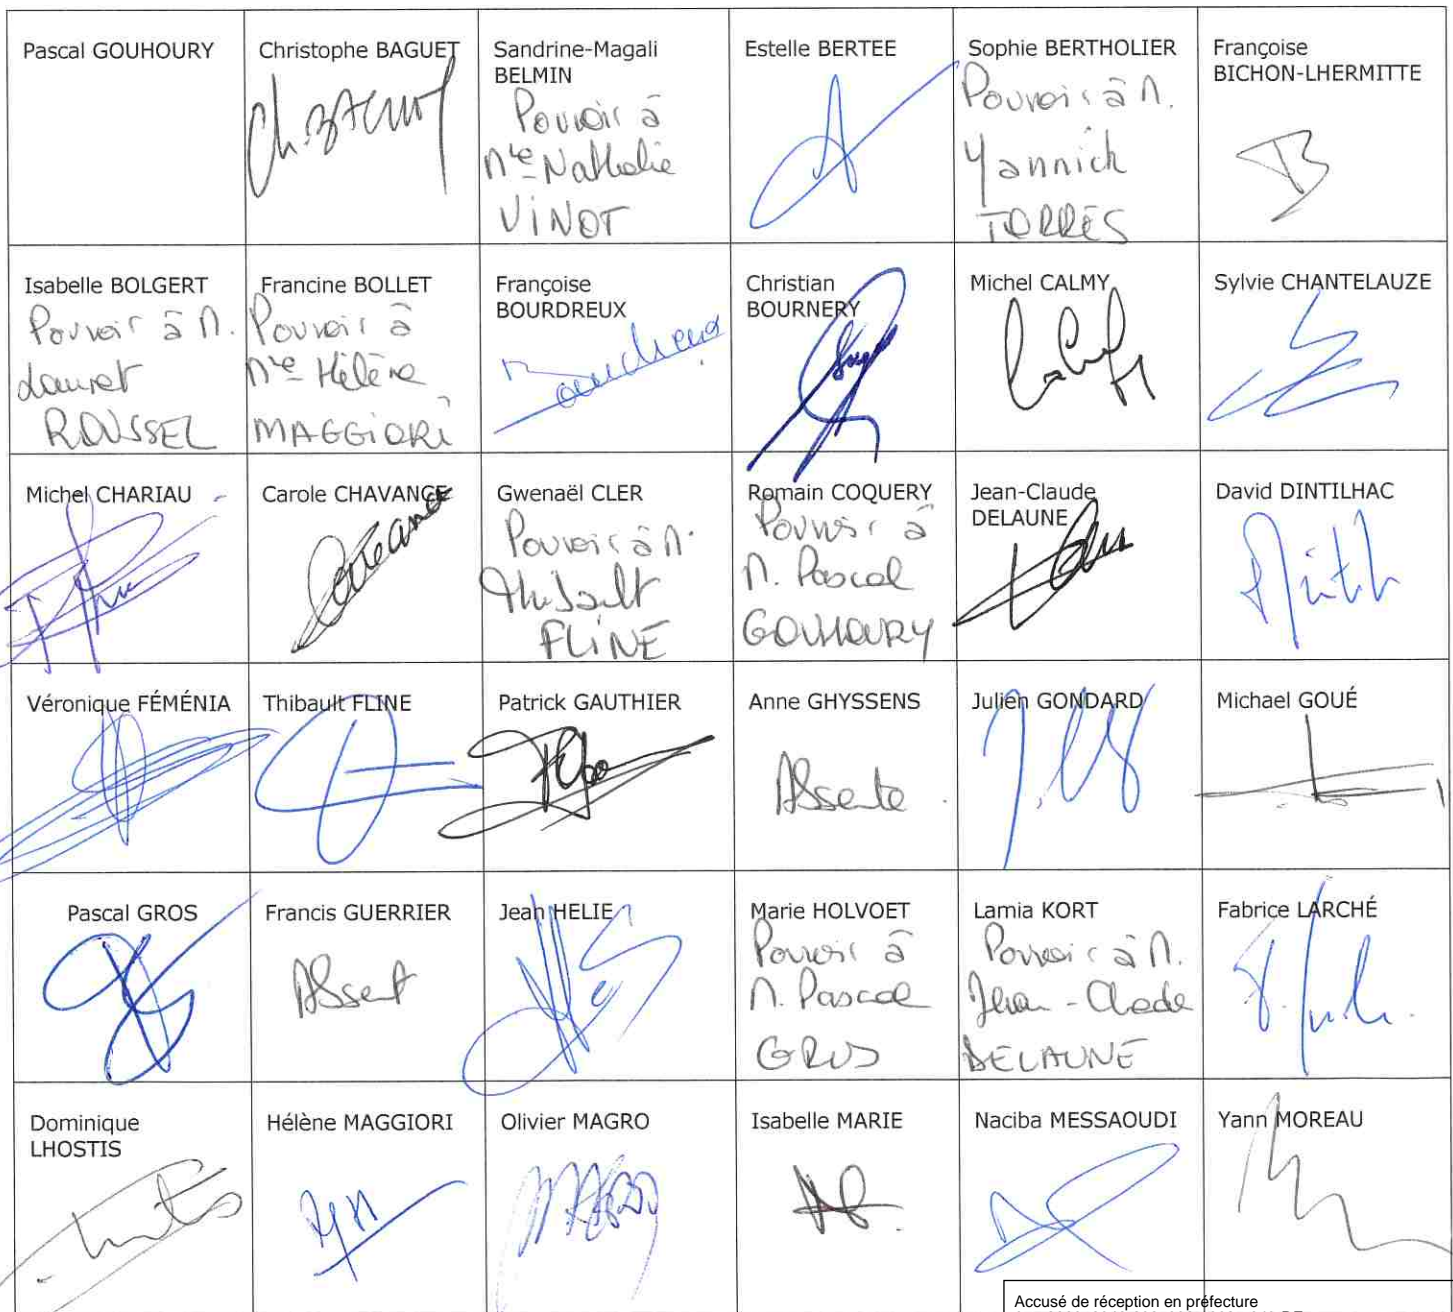 Pascal GOUHOURY
Christophe BAGUET
Ch. BAGUET
Sandrine-Magali
BELMIN
Pouvoir à
Mme Nathalie
VINOT
Estelle BERTEE
Sophie BERTHOLIER
Pouvoir à M.
Yannick
TORRES
Françoise
BICHON-LHERMITTE
Isabelle BOLGERT
Pouvoir à M.
Laurent
ROUSSEL
Francine BOLLET
Pouvoir à
Mme Hélène
MAGGIORI
Françoise
BOURDREUX
Christian
BOURNERY
Michel CALMY
Sylvie CHANTELAUZE
Michel CHARIAU
Carole CHAVANCE
Gwenaël CLER
Pouvoir à M.
Thibault
FLINE
Romain COQUERY
Pouvoir à
M. Pascal
GOUHOURY
Jean-Claude
DELAUNE
David DINTILHAC
Véronique FÉMÉNIA
Thibault FLINE
Patrick GAUTHIER
Anne GHYSSENS
Absente
Julien GONDARD
Michael GOUÉ
Pascal GROS
Francis GUERRIER
Absent
Jean HELIE
Marie HOLVOET
Pouvoir à
M. Pascal
GROS
Lamia KORT
Pouvoir à M.
Jean-Claude
DELAUNE
Fabrice LARCHÉ
Dominique
LHOSTIS
Hélène MAGGIORI
Olivier MAGRO
Isabelle MARIE
Naciba MESSAOUDI
Yann MOREAU
Accusé de réception en préfecture